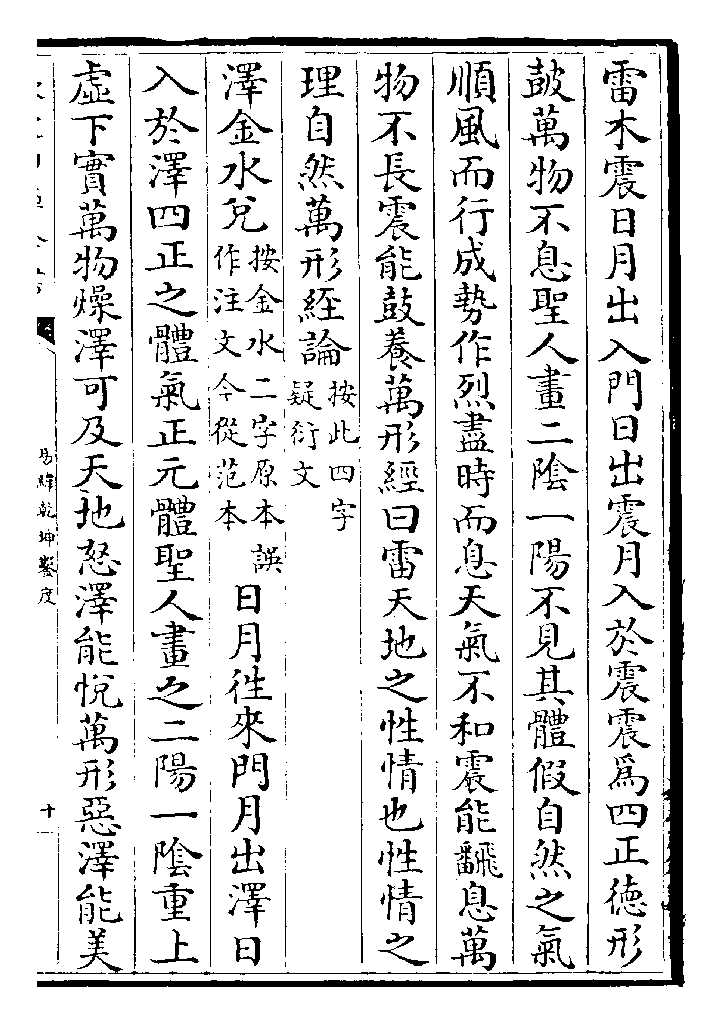 雷木震日月出入門日出震月入於震震爲四正徳形
鼓萬物不息聖人畫二陰一陽不見其體假自然之氣
順風而行成勢作烈盡時而息天氣不和震能飜息萬
物不長震能鼓養萬形經曰雷天地之性情也性情之
理自然萬形經論按此四字疑衍文
澤金水兌按金水二字原本誤作注文今從范本日月徃來門月出澤日
入於澤四正之體氣正元體聖人畫之二陽一陰重上
虛下實萬物燥澤可及天地怒澤能悅萬形惡澤能美
易緯乾坤鑿度
十